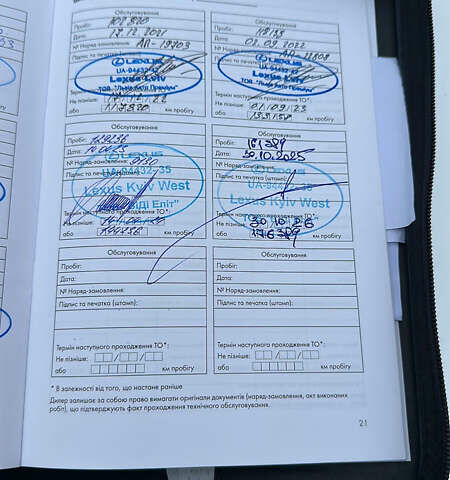 Обслуговування
Пробіг: 102 820
Дата: 17.12.2021
№ Наряд-замовлення: AR-19703
Підпис та печатка (штамп):
LEXUS
UA-94432-35
Lexus Kyiv
ТОВ "Льв Авто Преміум"
Термін наступного проходження ТО*:
Не пізніше:
або км пробігу
Обслуговування
Пробіг:
Дата: 02.09.2022
№ Наряд-замовлення: AR
Підпис та печатка (штамп):
LEXUS
Lexus Kyiv
Термін наступного проходження ТО*:
Не пізніше: 01/09/23
або км пробігу
Обслуговування
Пробіг:
Дата:
№ Наряд-замовлення:
Підпис та печатка (штамп):
LEXUS
UA-94432-35
Lexus Kyiv West
"Віді Еліт"
Термін наступного проходження ТО*:
Не пізніше:
або км пробігу
Обслуговування
Пробіг: 161389
Дата: 30.10.2025
№ Наряд-замовлення:
Підпис та печатка (штамп):
LEXUS
UA-94432-35
Lexus Kyiv West
Термін наступного проходження ТО*:
Не пізніше: 30 10 26
або 176389 км пробігу
Обслуговування
Пробіг:
Дата:
№ Наряд-замовлення:
Підпис та печатка (штамп):
Термін наступного проходження ТО*:
Не пізніше:
або км пробігу
Обслуговування
Пробіг:
Дата:
№ Наряд-замовлення:
Підпис та печатка (штамп):
Термін наступного проходження ТО*:
Не пізніше:
або км пробігу
* В залежності від того, що настане раніше
Дилер залишає за собою право вимагати оригінали документів (наряд-замовлення, акт виконаних
робіт), що підтверджують факт проходження технічного обслуговування.
21